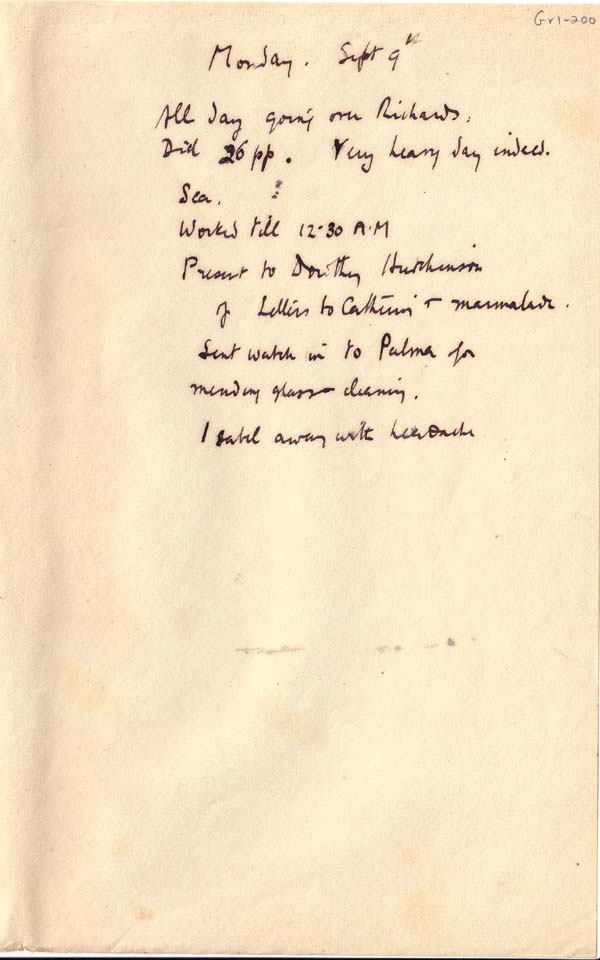 Gr1-200
Monday. Sept 9th
All day going over Richards.
Did 26 pp. Very heavy day indeed.
Sea.
Worked till 12-30 A.M
Present to Dorothy Hutchinson
of Letters to Catherine + marmalade.
Sent watch in to Palma for
mending glass + cleaning.
Isabel away with headache